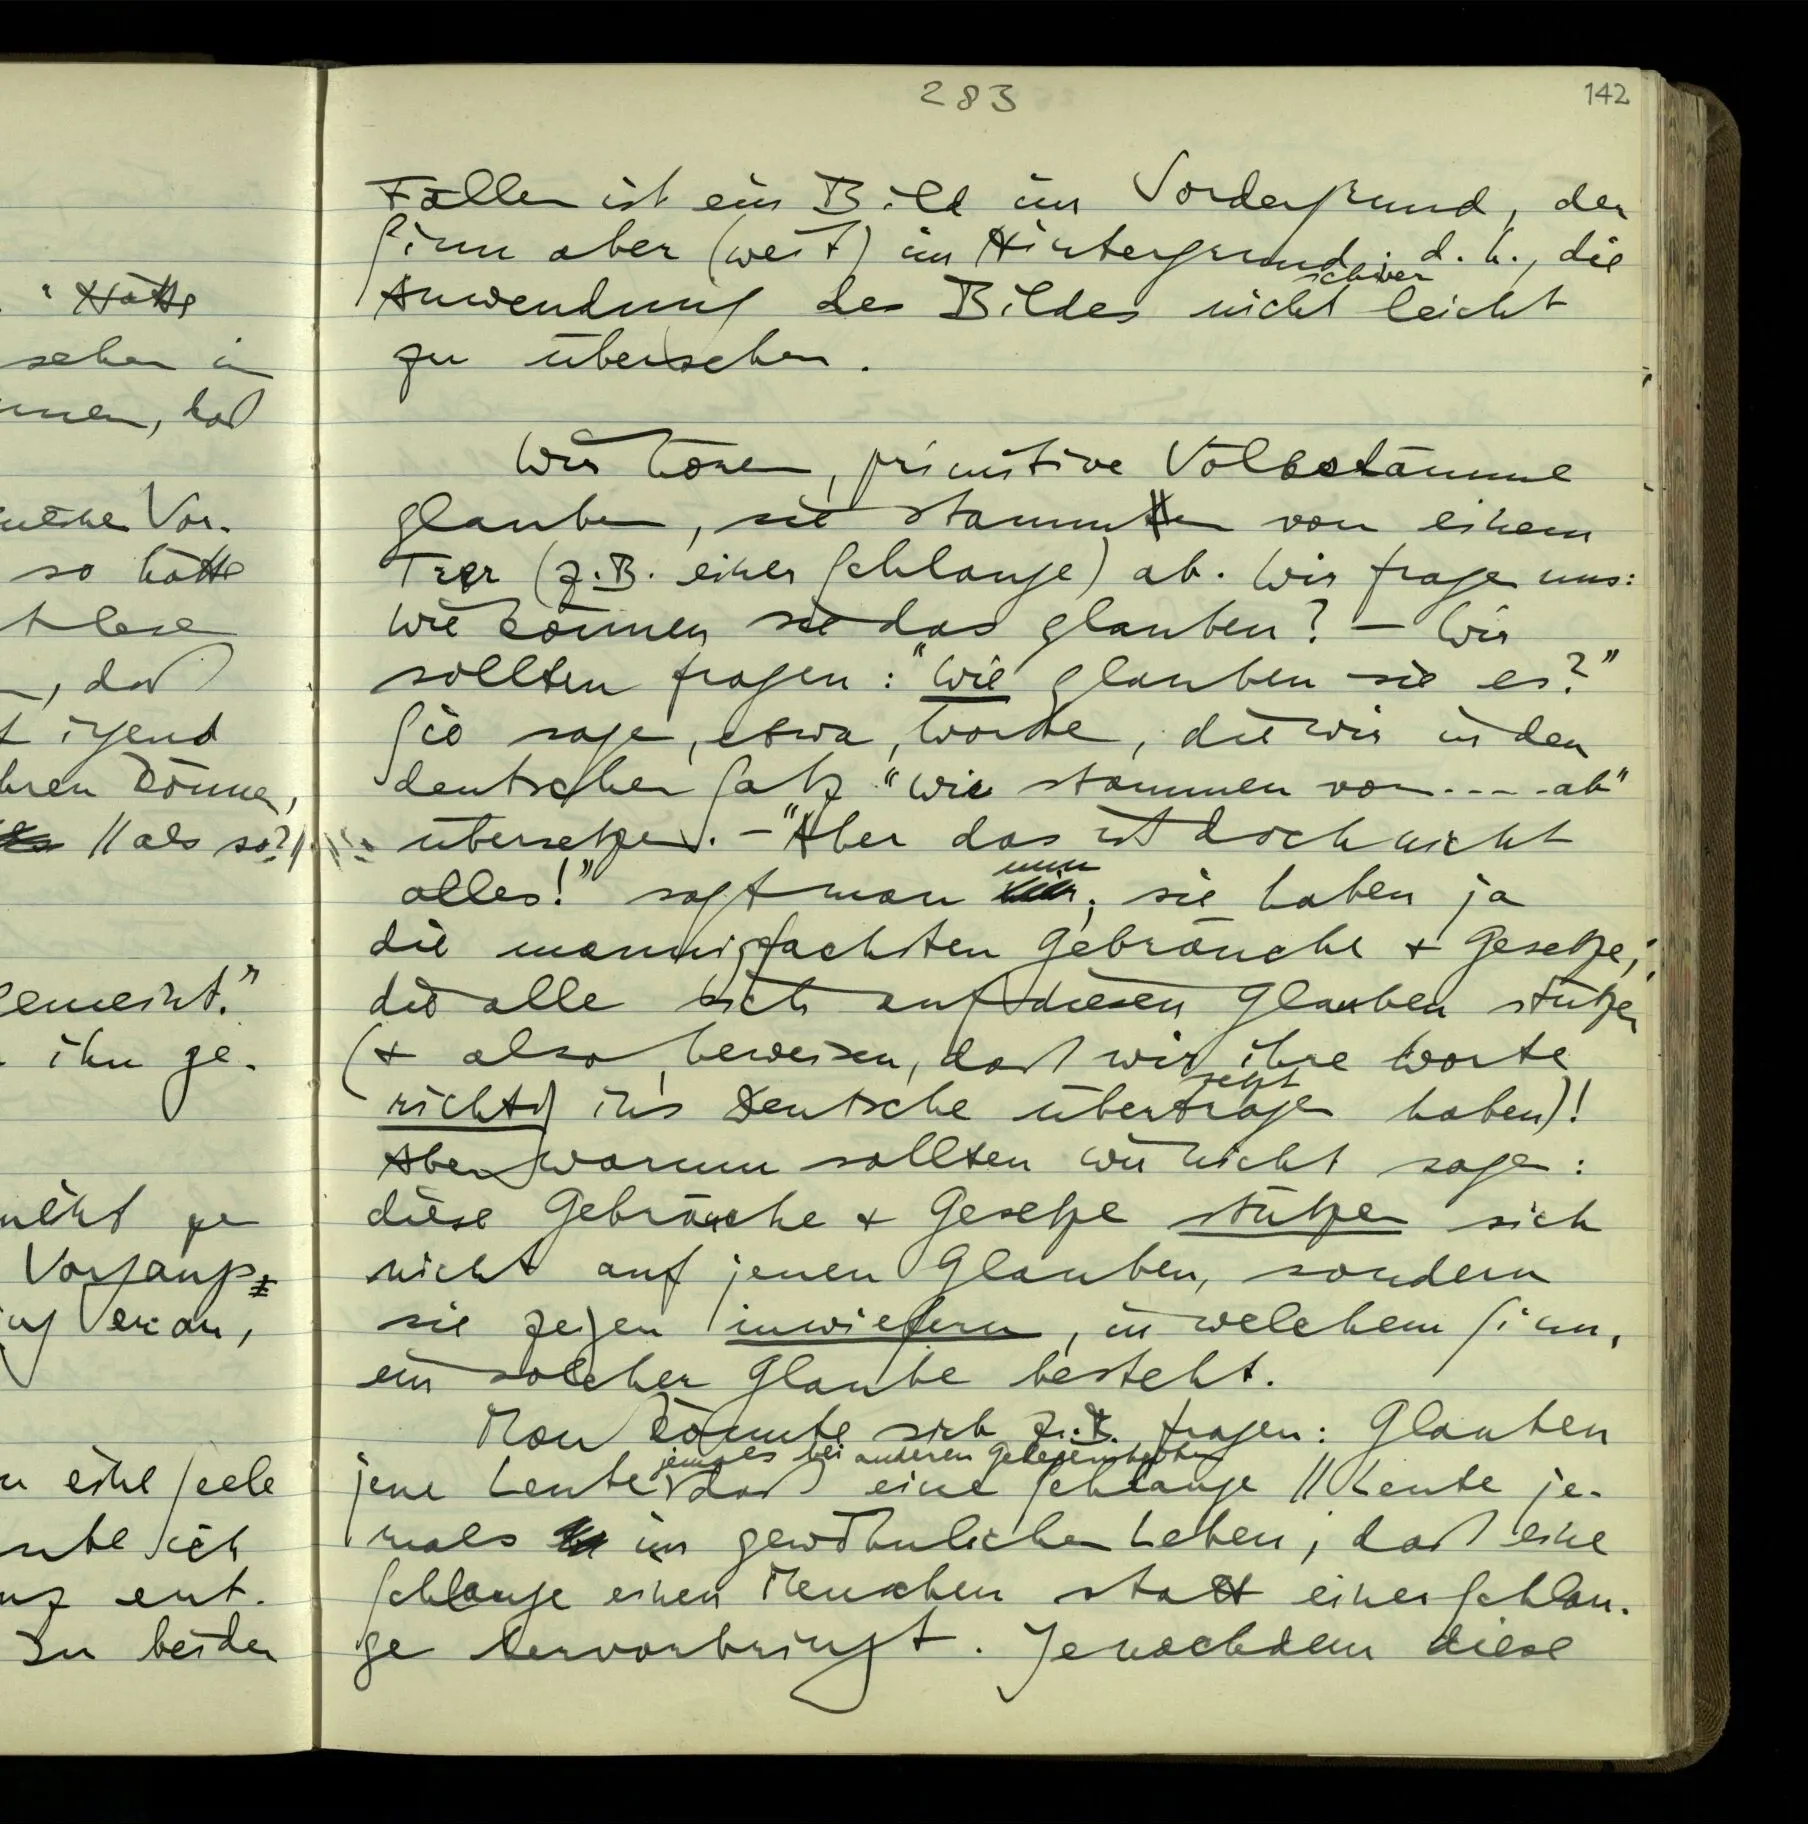 283
142
" Hätte
sehen in
daß
so hätte
, daß
irgend
können,
// als so?//
gemeint."
ihn ge-
Vorgang
an,
eine Seele
ich
ent-
In beiden
Fällen ist ein Bild im Vordergrund, der
Sinn aber (weit) im Hintergrund; d.h., die
schwer
Anwendung des Bildes nicht leicht
zu übersehen.
Wir hören, primitive Volksstämme
glauben, sie stammten von einem
Tier (z.B. einer Schlange) ab. Wir fragen uns:
Wie können sie das glauben? – Wir
sollten fragen: "Wie glauben sie es?"
Sie sagen, etwa, Worte, die wir in den
deutschen Satz "wir stammen von .... ab"
übersetzen. – "Aber das ist doch nicht
nun
alles!" sagt man; sie haben ja
die mannigfachsten Gebräuche & Gesetze,
die alle sich auf diesen Glauben stützen
(& also beweisen, daß wir ihre Worte
jetzt
richtig ins Deutsche übertragen haben)!
Aber warum sollten wir nicht sagen:
diese Gebräuche & Gesetze stützen sich
nicht auf jenen Glauben, sondern
sie zeigen inwiefern, in welchem Sinn,
ein solcher Glaube besteht.
Man könnte sich z.B. fragen: Glauben
jemals bei anderen Gelegenheiten
jene Leute daß eine Schlange // Leute je-
mals im gewöhnlichen Leben, daß eine
Schlange einen Menschen statt einer Schlan-
ge hervorbringt. Jenachdem diese